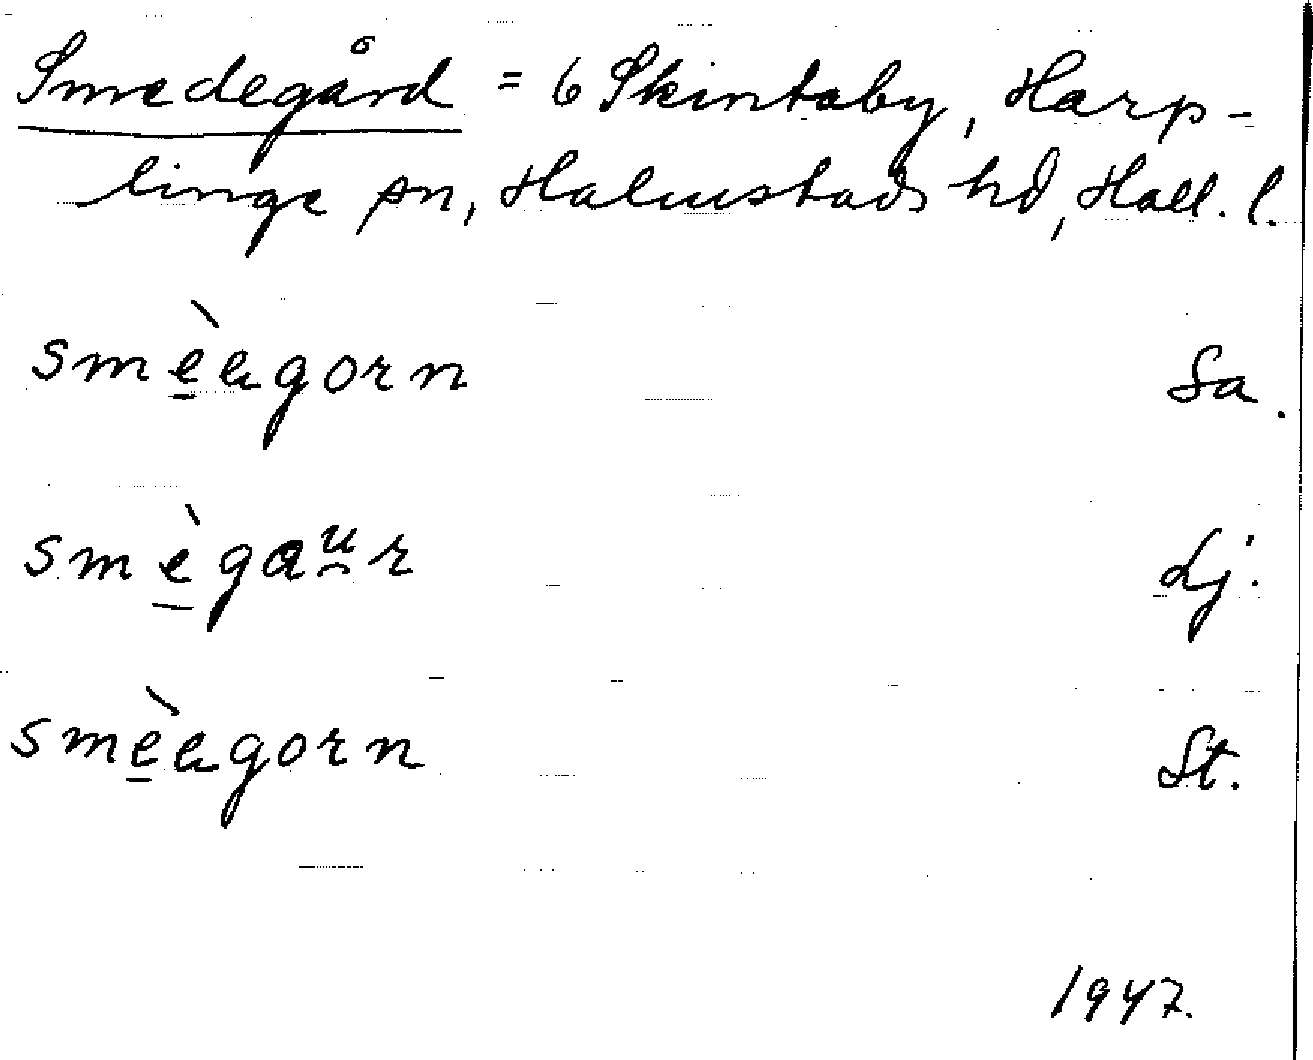 Smedegård = 6 Skintaby, Harp-
linge sn, Halmstads hd, Hall. l.
smèegorn Sa.
smègau̯r Lj.
smèegorn St.
1947.